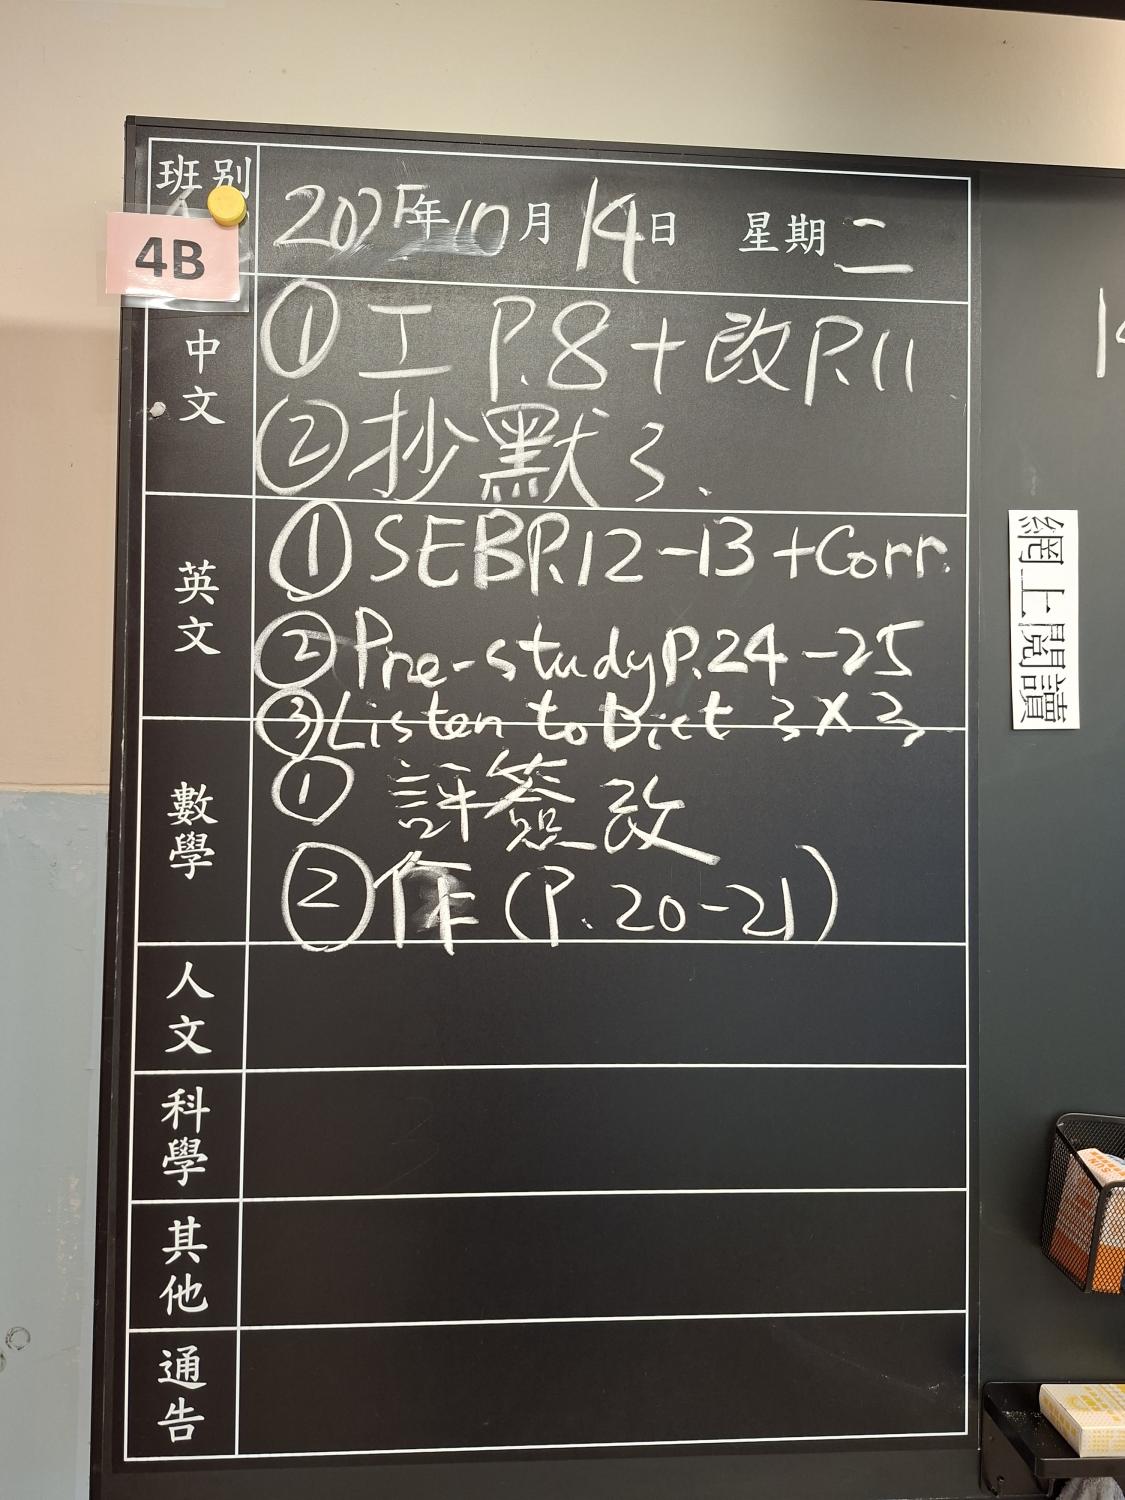 班別
4B
2025年10月14日 星期二
中文
① 工 P.8 + 改 P.11
② 抄默 3.
英文
① SEB P.12-13 + Corr.
② Pre-study P.24-25
③ Listen to Dict 3 X 3
數學
① 評簽改
② 作 (P.20-21)
人文
科學
其他
通告
網上閱讀
SUN